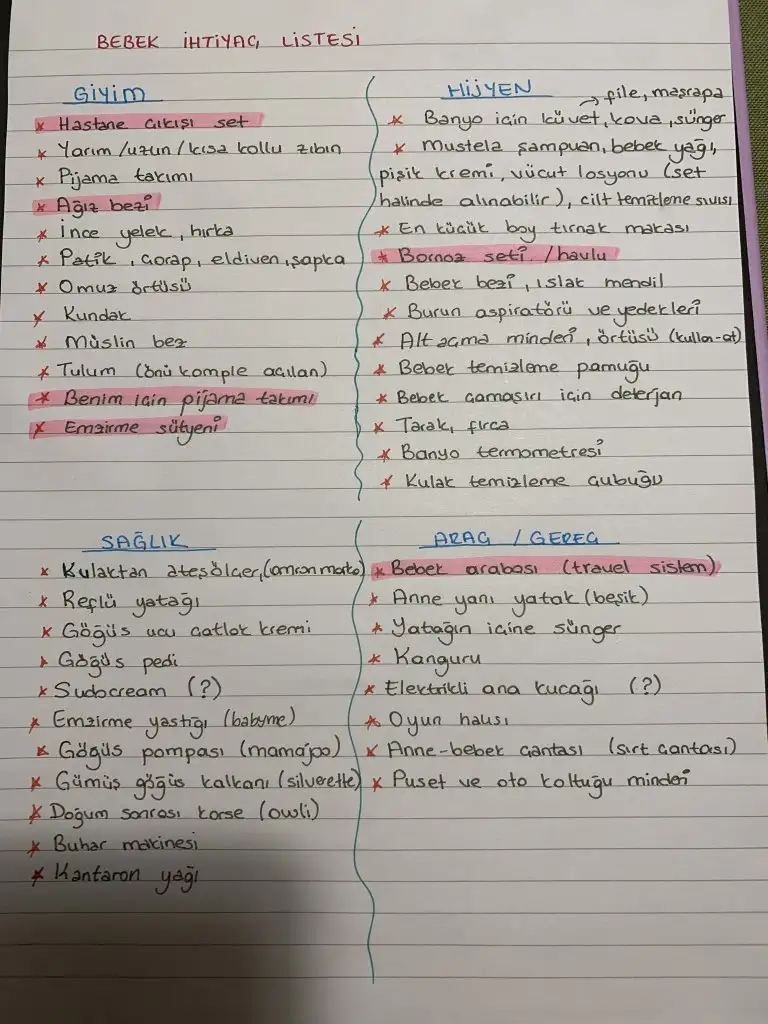 BEBEK İHTİYAÇ LİSTESİ
GİYİM
* Hastane çıkışı set
* Yarım/uzun/kısa kollu zıbın
* Pijama takımı
* Ağız bezi
* İnce yelek, hırka
* Patik, çorap, eldiven, şapka
* Omuz örtüsü
* Kundak
* Müslin bez
* Tulum (önü komple açılan)
* Benim için pijama takımı
* Emzirme sütyeni
HİJYEN
→ file, maşrapa
* Banyo için küvet, kova, sünger
* Mustela şampuan, bebek yağı,
pişik kremi, vücut losyonu (set
halinde alınabilir), cilt temizleme sıvısı
* En küçük boy tırnak makası
* Bornoz seti / havlu
* Bebek bezi, ıslak mendil
* Burun aspiratörü ve yedekleri
* Alt açma minderi, örtüsü (kullan-at)
* Bebek temizleme pamuğu
* Bebek çamaşırı için deterjan
* Tarak, fırça
* Banyo termometresi
* Kulak temizleme çubuğu
SAĞLIK
* Kulaktan ateşölçer, (omron marka)
* Reflü yatağı
* Göğüs ucu çatlak kremi
* Göğüs pedi
* Sudocream (?)
* Emzirme yastığı (babyme)
* Göğüs pompası (mamajoo)
* Gümüş göğüs kalkanı (silverette)
* Doğum sonrası korse (owli)
* Buhar makinesi
* Kantaron yağı
ARAÇ / GEREÇ
* Bebek arabası (travel sistem)
* Anne yanı yatak (beşik)
* Yatağın içine sünger
* Kanguru
* Elektrikli ana kucağı (?)
* Oyun halısı
* Anne-bebek çantası (sırt çantası)
* Puset ve oto koltuğu minderi